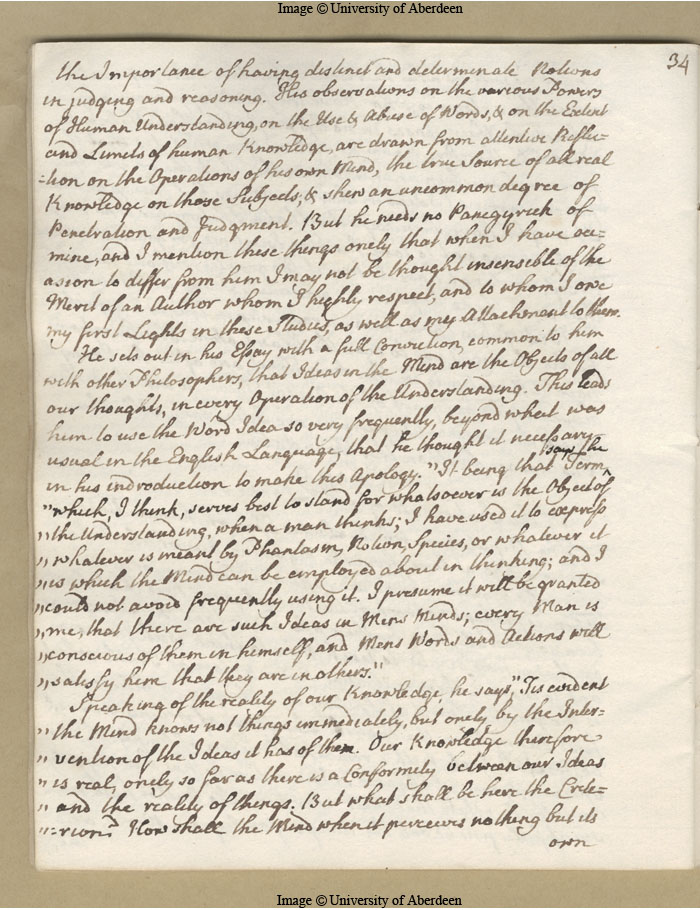 Image © University of Aberdeen
34
the Importance of having distinct and determinate Notions
in judging and reasoning. His observations on the various Powers
of Human Understanding, on the Use & Abuse of Words, & on the Extent
and Limits of human Knowledge, are drawn from attentive Reflec-
=tion on the Operations of his own Mind, the true Source of all real
Knowledge on those Subjects; & shew an uncommon degree of
Penetration and Judgment. But he needs no Panegyrick of
mine, and I mention these things onely that when I have occ-
asion to differ from him I may not be thought insensible of the
Merit of an Author whom I highly respect, and to whom I owe
my first Lights in these Studies, as well as my Attachment to them.
He sets out in his Essay with a full Conviction, common to him
with other Philosophers, that Ideas in the Mind are the Objects of all
our thoughts, in every Operation of the Understanding. This leads
him to use the Word Idea so very frequently, beyond what was
usual in the English Language, that he thought it necessary
in his introduction to make this Apology. "It being that Term, says he
"which, I think, serves best to stand for whatsoever is the Object of
"the Understanding, when a man thinks; I have used it to express
"whatever is meant by Phantasm, Notion, Species, or whatever it
"is which the Mind can be employed about in thinking; and I
"could not avoid frequently using it. I presume it will be granted
"me, that there are such Ideas in Mens Minds; every Man is
"conscious of them in himself, and Mens Words and Actions will
"satisfy him that they are in others."
Speaking of the reality of our Knowledge, he says, "Tis evident
"the Mind knows not things immediately, but onely by the Inter-
"vention of the Ideas it has of them. Our Knowledge therefore
"is real, onely so far as there is a Conformity between our Ideas
"and the reality of things. But what shall be here the Crite-
"=rion? How shall the Mind when it perceives nothing but its
own
Image © University of Aberdeen